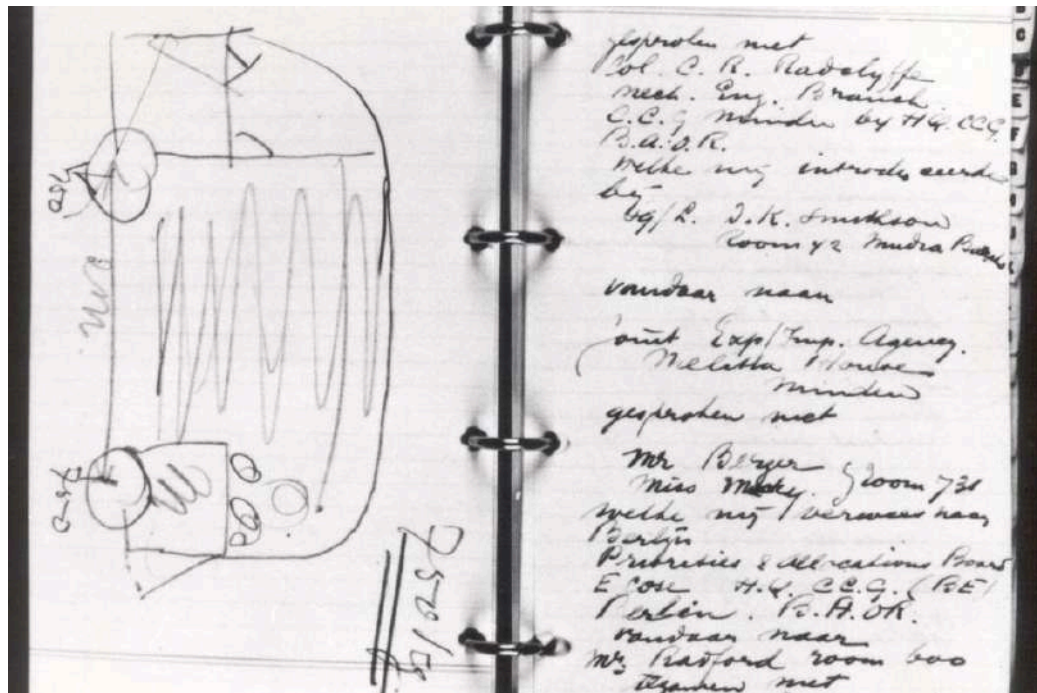 750
750
750 kg
gesproken met
Col. C. R. Radclyffe
Mech. Eng. Branch.
C.C.G Minden by H.Q. CCG.
B.A.O.R.
welke mij introduceerde
bij
T.K. Smithson
Room
vandaar naar
Joint Exp/Imp. Agency.
Melitta House
Minden
gesproken met
Mr Berger
Miss Room 731
welke mij verwees naar
Berlijn
Priorities & Allocations Board
H.Q. CCG. (BE)
Berlin. B.A.O.R.
vandaar naar
Mr. Radford room 600
tezamen met
C
D
E
F
G